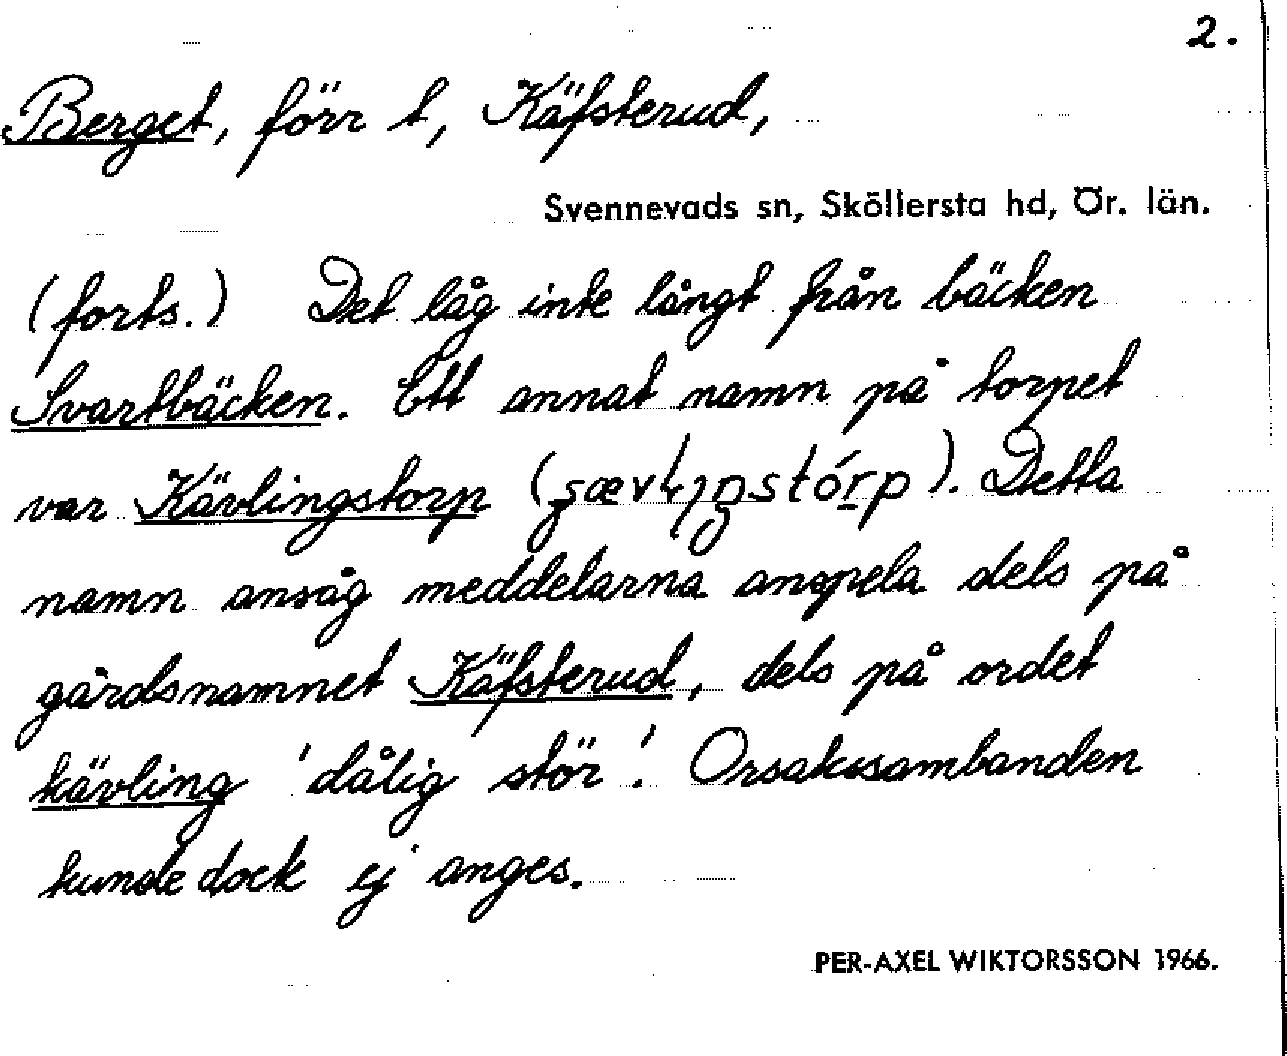 2.
Berget, förr t, Käfsterud,
Svennevads sn, Sköllersta hd, Ör. län.
(forts.) Det låg inte långt från bäcken
Svartbäcken. Ett annat namn på torpet
var Kävlingstorp. Detta
namn ansåg meddelarna anspela dels på
gårdsnamnet Käfsterud, dels på ordet
kävling 'dålig stör'. Orsakssambanden
kunde dock ej anges.
PER-AXEL WIKTORSSON 1966.